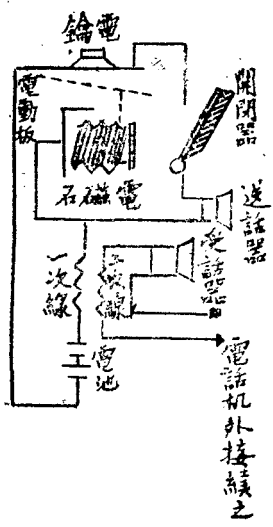 電
電動板
開閉器
電磁石
送話器
受話器
一次線
二次線
電池
電話机外接續之